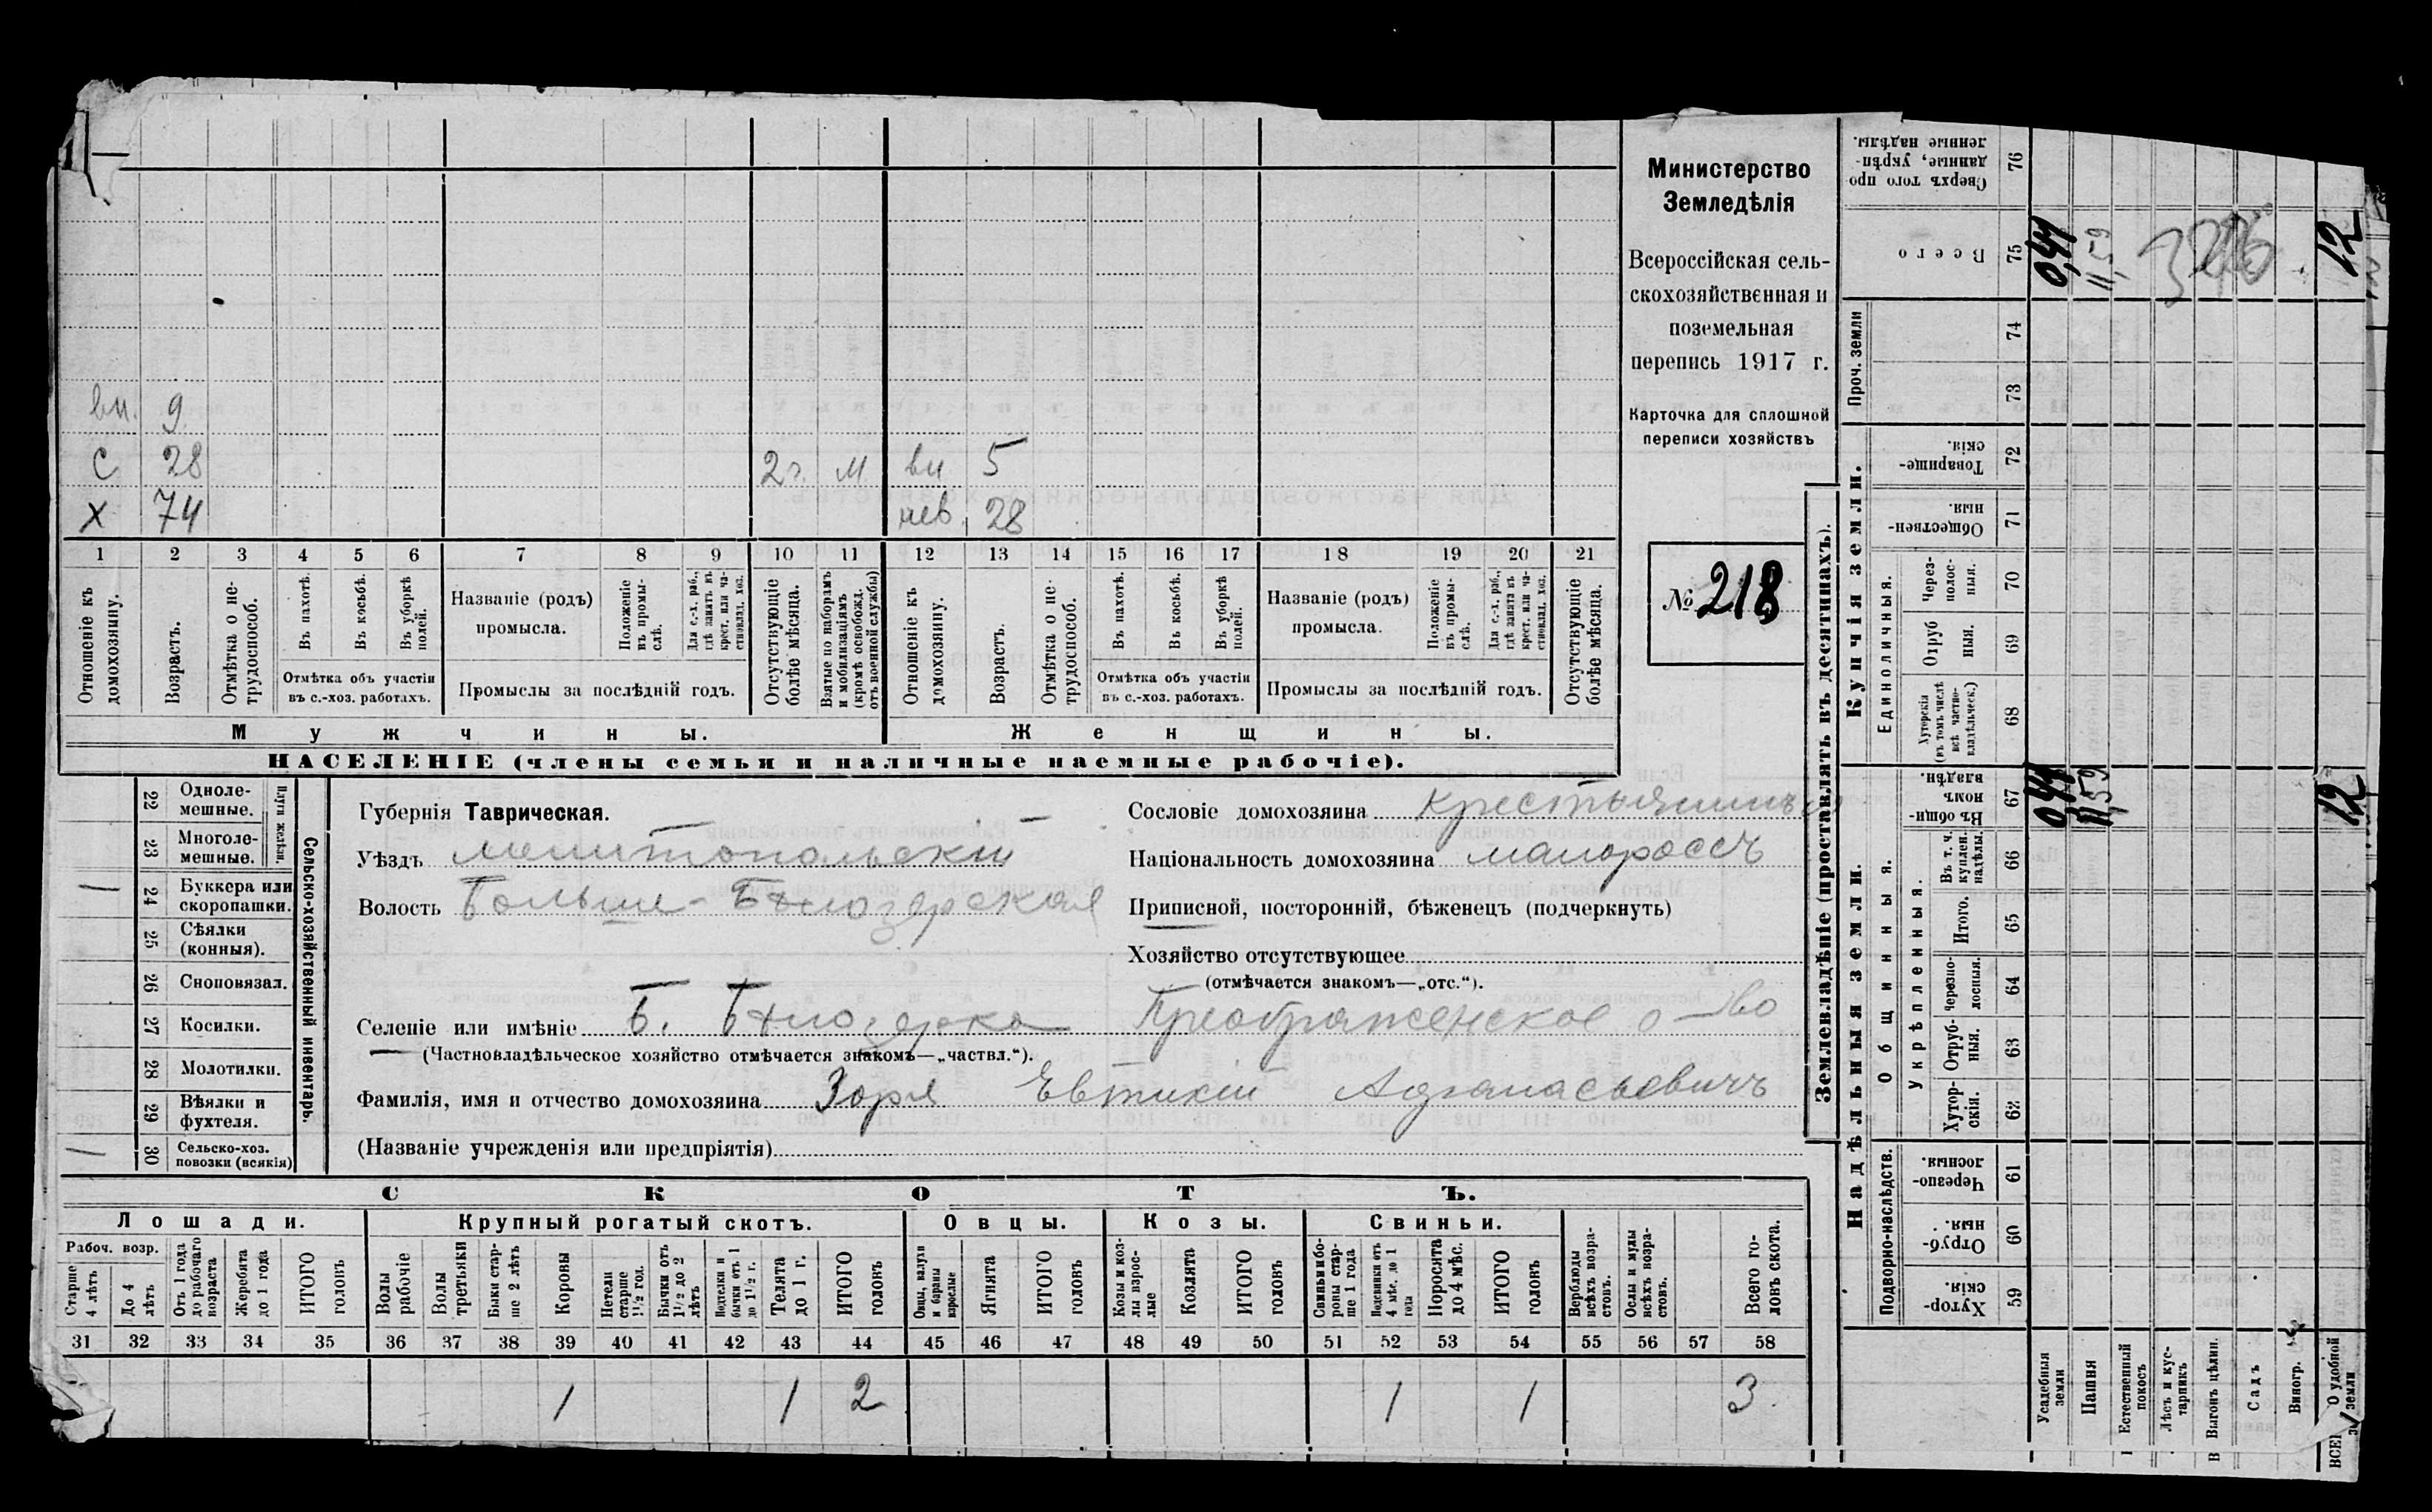 вн. 9
С 28 2г. М вн 5
Х 74 нев. 28
1 2 3 4 5 6 7 8 9 10 11 12 13 14 15 16 17 18 19 20 21
Отношеніе къ домохозяину.
Возрастъ.
Отмѣтка о не-трудоспособ.
Въ пахотѣ.
Въ косьбѣ.
Въ уборкѣ полей.
Отмѣтка объ участіи
въ с.-хоз. работахъ.
Названіе (родъ)
промысла.
Положеніе въ промы-слѣ.
Для с.-х. раб., гдѣ занятъ въ крест. или ча-стновлад. хоз.
Промыслы за послѣдній годъ.
Отсутствующіе болѣе мѣсяца.
Взятые по наборамъ и мобилизаціямъ (кромѣ освобожд. отъ военной службы)
Отношеніе къ домохозяину.
Возрастъ.
Отмѣтка о не-трудоспособ.
Въ пахотѣ.
Въ косьбѣ.
Въ уборкѣ полей.
Отмѣтка объ участіи
въ с.-хоз. работахъ.
Названіе (родъ)
промысла.
Положеніе въ промы-слѣ.
Для с.-х. раб., гдѣ занята въ крест. или ча-стновлад. хоз.
Промыслы за послѣдній годъ.
Отсутствующіе болѣе мѣсяца.
Мужчины.
Женщины.
НАСЕЛЕНІЕ (члены семьи и наличные наемные рабочіе).
Министерство
Земледѣлія
Всероссійская сель-
скохозяйственная и
поземельная
перепись 1917 г.
Карточка для сплошной
переписи хозяйствъ
№ 218
22 Однолемешные.
23 Многолемешные.
Плуги желѣзн.
24 Буккера или скоропашки.
25 Сѣялки (конныя).
26 Сноповязал.
27 Косилки.
28 Молотилки.
29 Вѣялки и фухтеля.
30 Сельско-хоз. повозки (всякія)
Сельско-хозяйственный инвентарь.
Губернія Таврическая.
Уѣздъ Мелитопольскій
Волость Больше-Бѣлозерская
Селеніе или имѣніе Б. Бѣлозерка Преображенское о-тво
(Частновладѣльческое хозяйство отмѣчается знакомъ—„частвл.“).
Фамилія, имя и отчество домохозяина Зоря Евтихій Афанасьевичъ
(Названіе учрежденія или предпріятія)
Сословіе домохозяина крестьянинъ
Національность домохозяина малороссъ
Приписной, посторонній, бѣженецъ (подчеркнуть)
Хозяйство отсутствующее
(отмѣчается знакомъ—„отс.“).
СКОТЪ.
Лошади. Крупный рогатый скотъ. Овцы. Козы. Свиньи.
Рабоч. возр.
Старше 4 лѣтъ
До 4 лѣтъ
Отъ 1 года до рабочаго возраста
Жеребята до 1 года
ИТОГО головъ
Волы рабочіе
Волы третьяки
Быки стар-ше 2 лѣтъ
Коровы
Нетели старше 1½ год.
Бычки отъ 1½ до 2 лѣтъ
Подтелки и бычки отъ 1 до 1½ г.
Телята до 1 г.
ИТОГО головъ
Овцы, валухи и бараны взрослые
Ягнята
ИТОГО головъ
Козы и коз-лы взрос-лые
Козлята
ИТОГО головъ
Свиньи и бо-ровы стар-ше 1 года
Подсвинки отъ 4 мѣс. до 1 года
Поросята до 4 мѣс.
ИТОГО головъ
Верблюды всѣхъ возра-стовъ.
Ослы и мулы всѣхъ возра-стовъ.
Всего го-ловъ скота.
31 32 33 34 35 36 37 38 39 40 41 42 43 44 45 46 47 48 49 50 51 52 53 54 55 56 57 58
1 1 2 1 1 3
Землевладѣніе (проставлять въ десятинахъ).
Купчія земли.
Надѣльныя земли.
Сверхъ того про-данные, укрѣп-ленные надѣлы. 76
Всего 75 0,44 11,59 12
Проч. земли 74
73
Товарище-скія. 72
Обществен-ныя. 71
Единоличныя.
Через-полос-ныя. 70
Отруб-ныя. 69
Хуторскія (въ томъ числѣ всѣ частно-владѣльческ.) 68
Общинныя.
Въ общин-номъ владѣн. 67 0,44 11,59 12
Укрѣпленныя.
Въ т. ч. куплен. надѣлы. 66
Итого. 65
Черезпо-лосныя. 64
Отруб-ныя. 63
Хутор-скія. 62
Подворно-наслѣдств.
Черезпо-лосныя. 61
Отруб-ныя. 60
Хутор-скія. 59
Усадебныя земли
Пашня
Естественный покосъ
Лѣсъ и кус-тарникъ
Выгонъ цѣлин.
Садъ
Виногр.
удобной земли